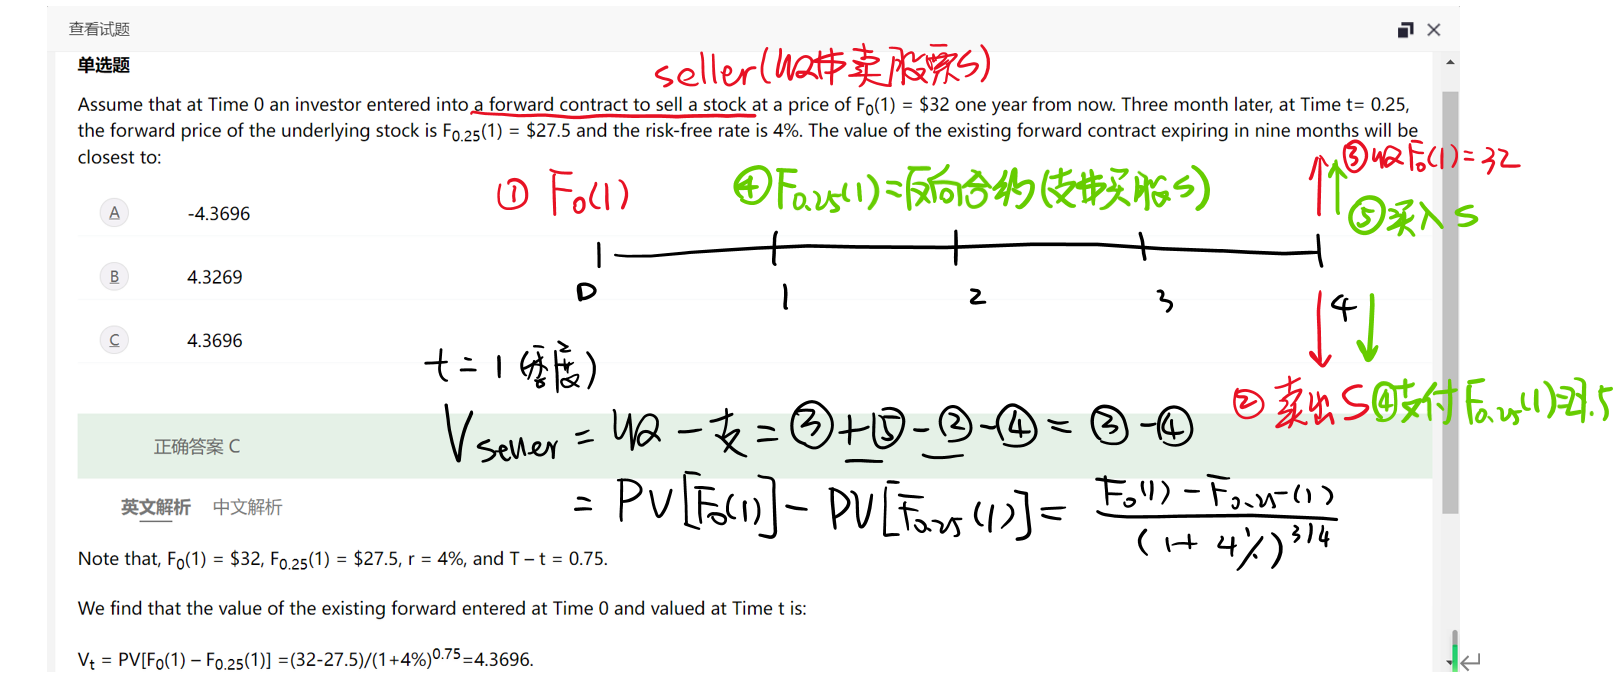 查看试题
单选题
seller(收钱卖股票S)
Assume that at Time 0 an investor entered into a forward contract to sell a stock at a price of F₀(1) = $32 one year from now. Three month later, at Time t= 0.25,
the forward price of the underlying stock is F₀.₂₅(1) = $27.5 and the risk-free rate is 4%. The value of the existing forward contract expiring in nine months will be
closest to:
③收F₀(1)=32
① F₀(1)
④F₀.₂₅(1)=反向合约(支钱买股S)
⑤买入 S
A -4.3696
B 4.3269
C 4.3696
0 1 2 3 4
t = 1 (季度)
② 卖出 S ④支付 F₀.₂₅(1)=27.5
V seller = 收 - 支 = ③+⑤-②-④ = ③-④
正确答案 C
= PV[F₀(1)] - PV[F₀.₂₅(1)] = F₀(1) - F₀.₂₅(1) / (1+4%)^3/4
英文解析 中文解析
Note that, F₀(1) = $32, F₀.₂₅(1) = $27.5, r = 4%, and T – t = 0.75.
We find that the value of the existing forward entered at Time 0 and valued at Time t is:
Vₜ = PV[F₀(1) – F₀.₂₅(1)] =(32-27.5)/(1+4%)⁰·⁷⁵=4.3696.